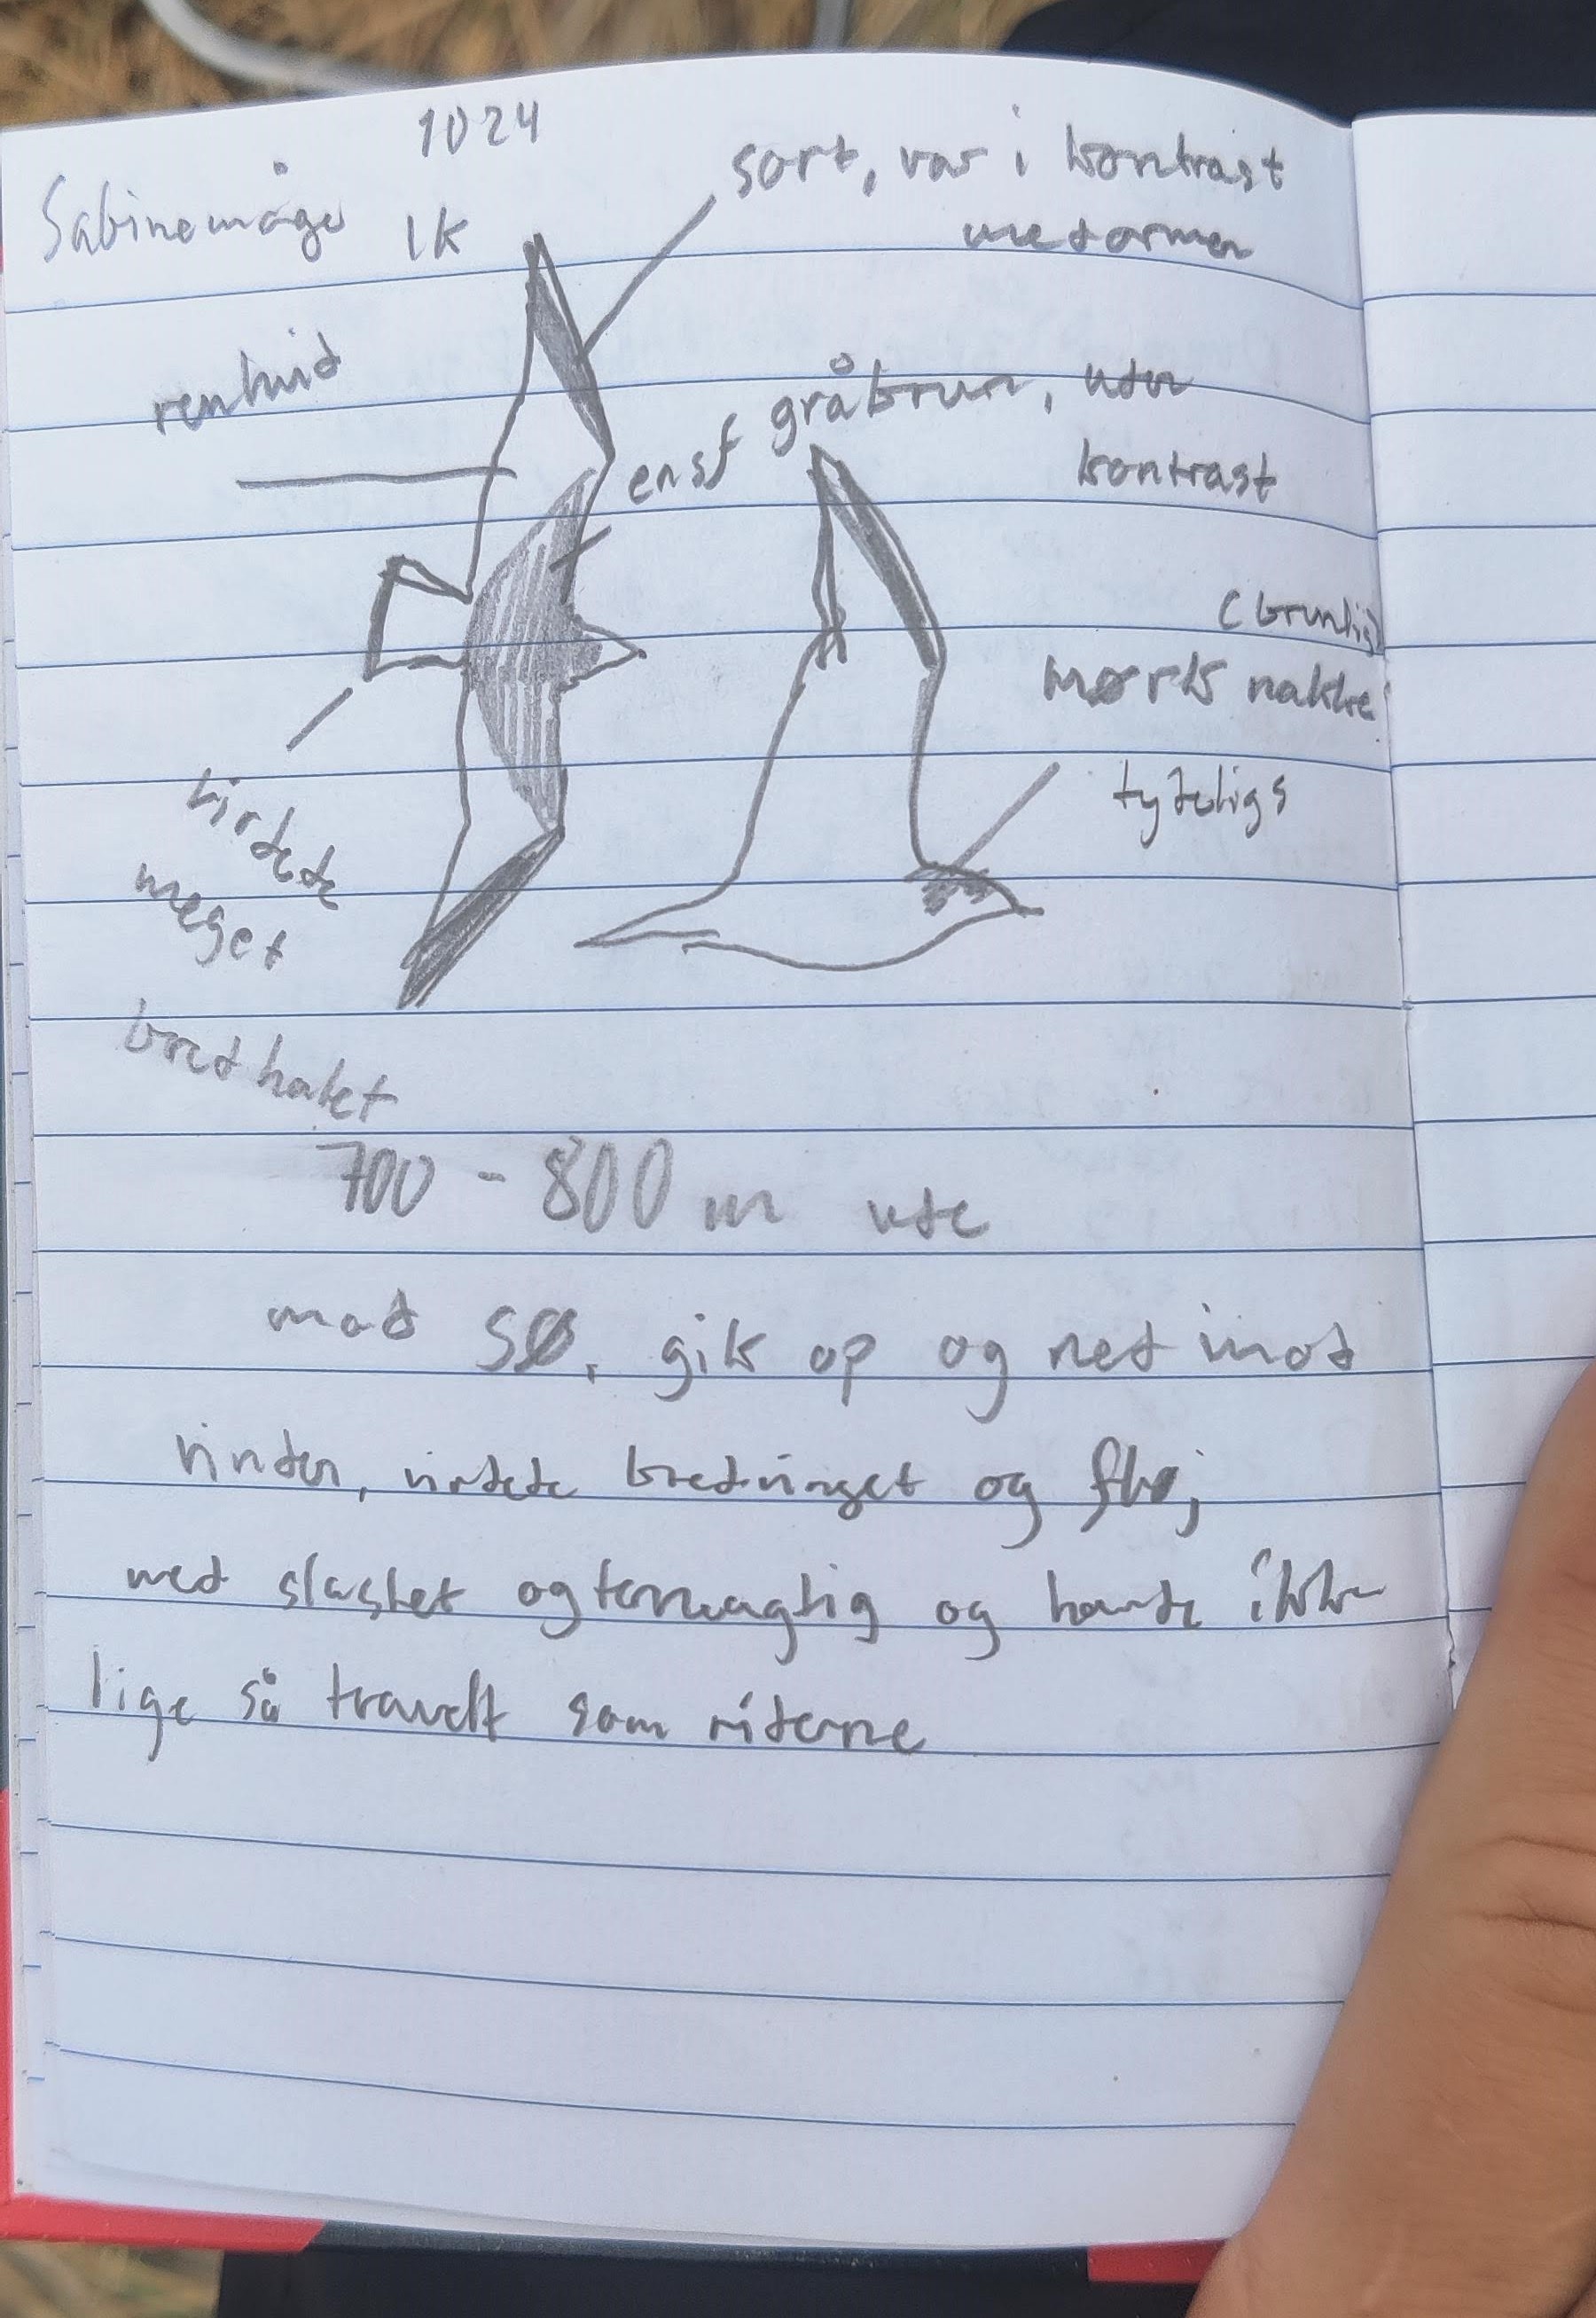 1024
Sabinemåge 1k
sort, var i kontrast
med armen
renhvid
ensf gråbrun, uden
kontrast
(brunlig)
mørk nakke
tydelig
virkede
meget
bredhalet
700 - 800 m ude
mod SØ, gik op og ned imod
vinden, virkede bredvinget og fløj
med slasket og ternagtig og havde ikke
lige så travlt som riderne